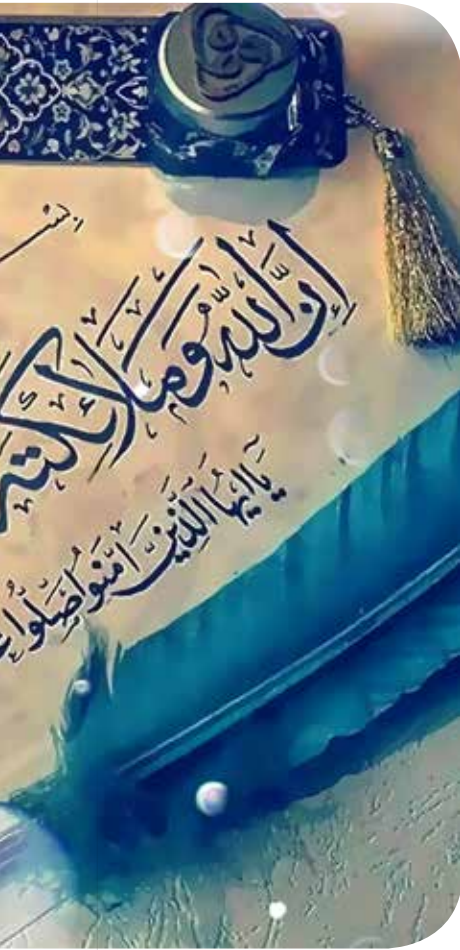 إِنَّ اللَّهَ وَمَلَائِكَتَهُ
يَا أَيُّهَا الَّذِينَ آمَنُوا صَلُّوا